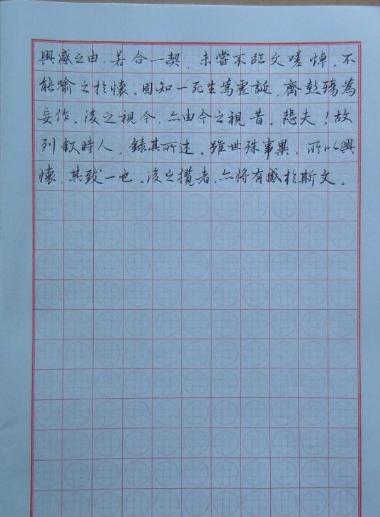 興感之由，若合一契，未嘗不臨文嗟悼，不
能喻之於懷。固知一死生為虛誕，齊彭殤為
妄作。後之視今，亦由今之視昔。悲夫！故
列敘時人，錄其所述。雖世殊事異，所以興
懷，其致一也。後之攬者，亦將有感於斯文。